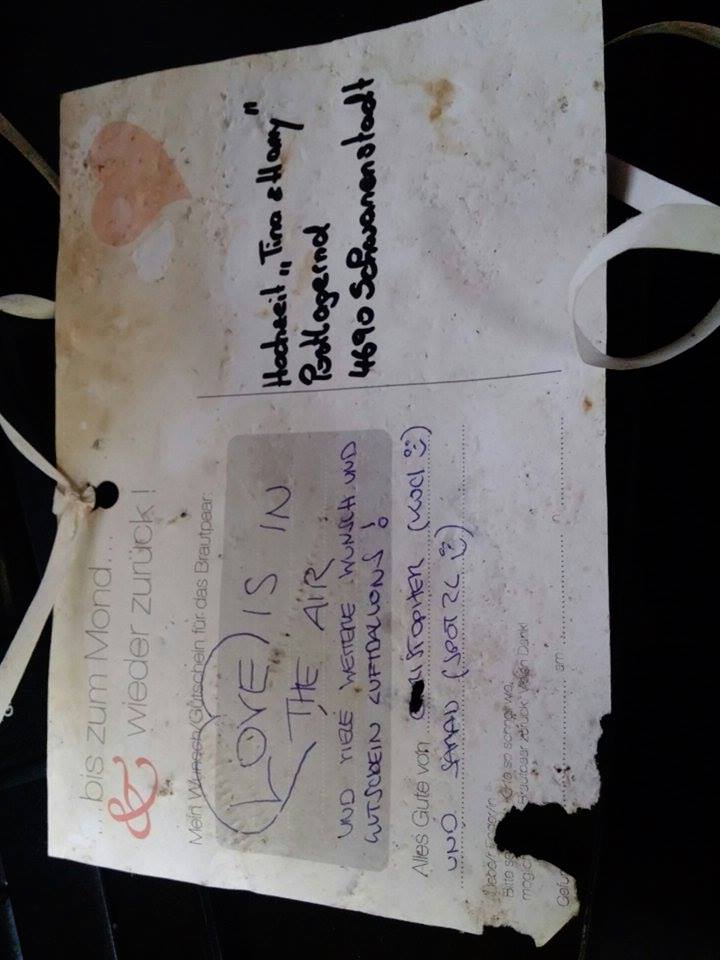 ...bis zum Mond...
& wieder zurück!
Mein Wunsch/Gutschein für das Brautpaar:
LOVE IS IN
THE AIR
UND VIELE WEITERE WUNSCH UND
GUTSCHEIN LUFTBALLONS!
Alles Gute von
UND SARAH
Liebe/r Finder/in
Bitte
möglich Brautpaar zurück. Vielen Dank!
am in
Hochzeit „Tina & Harry"
Postlagernd
4690 Schwanenstadt